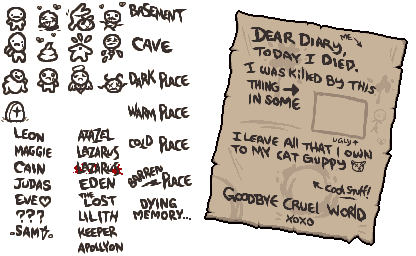 BASEMENT
CAVE
DARK PLACE
WARM PLACE
COLD PLACE
BARREN PLACE
DYING
MEMORY...
LEON
MAGGIE
CAIN
JUDAS
EVE♡
???
SAM
AZAZEL
LAZARUS
LAZARUS
EDEN
THE
LOST
LILITH
KEEPER
APOLLYON
DEAR DIARY,
ME
TODAY I DIED.
I WAS KILLED BY THIS
THING →
IN SOME
UGLY↑
I LEAVE ALL THAT I OWN
TO MY CAT GUPPY
↖ COOL STUFF!
GOODBYE CRUEL WORLD
XOXO